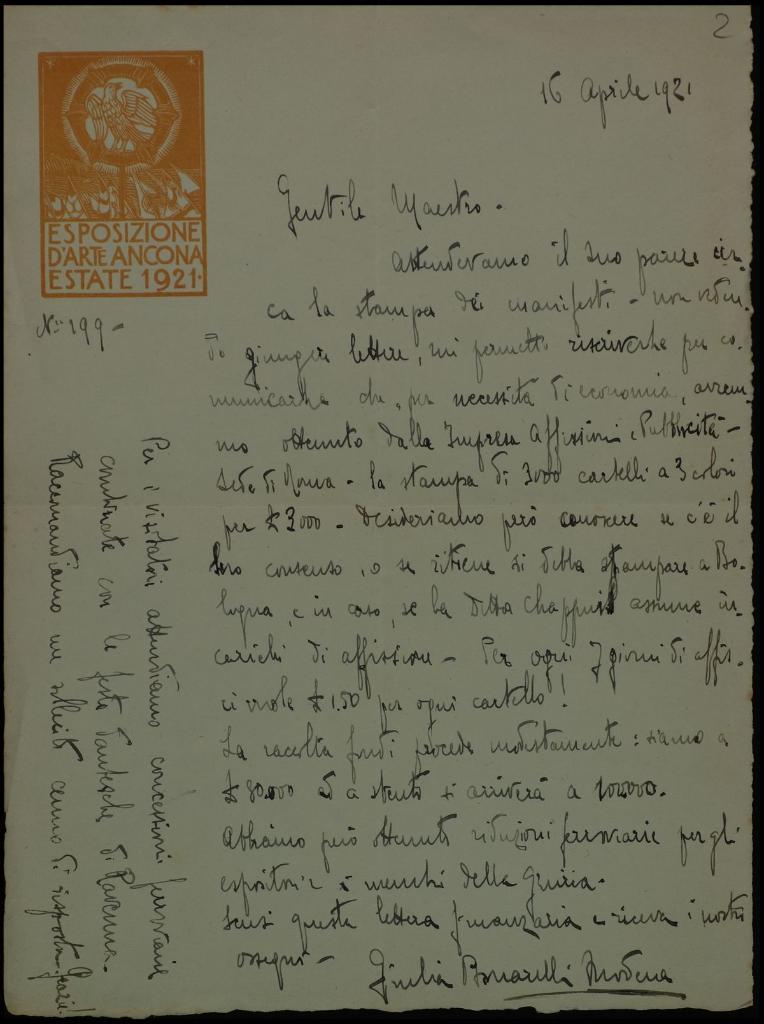 2
16 Aprile 1921
ESPOSIZIONE
D'ARTE ANCONA
ESTATE 1921.
No 199 -
Gentile Maestro -
Attendevamo il suo parere cir-
ca la stampa dei manifesti - non veden-
do giungere lettere, mi permetto riscriverle per co-
municarle che, per necessità di economia, avrem-
mo ottenuto dalla Impresa Affissioni e Pubblicità -
Sede di Roma - la stampa di 3000 cartelli a 3 colori
per £ 3000 - Desideriamo però conoscere se c'è il
Suo consenso, o se ritiene si debba stampare a Bo-
logna, e in caso, se la Ditta Chappuis assume in-
carichi di affissione - Per ogni 7 giorni di affis.
ci vuole £ 1.50 per ogni cartello!
La raccolta fondi procede modestamente: siamo a
£ 80.000 ed a stento si arriverà a 100.000.
Abbiamo però ottenuto riduzioni ferroviarie per gli
espositori e i membri della Giuria -
Scusi questa lettera finanziaria e riceva i nostri
ossequi -
Giulia Bonarelli Modena
Per i visitatori attendiamo concessioni ferroviarie
combinate con le feste Dantesche di Ravenna.
Raccomandiamo un sollecito cenno di risposta. Grazie!